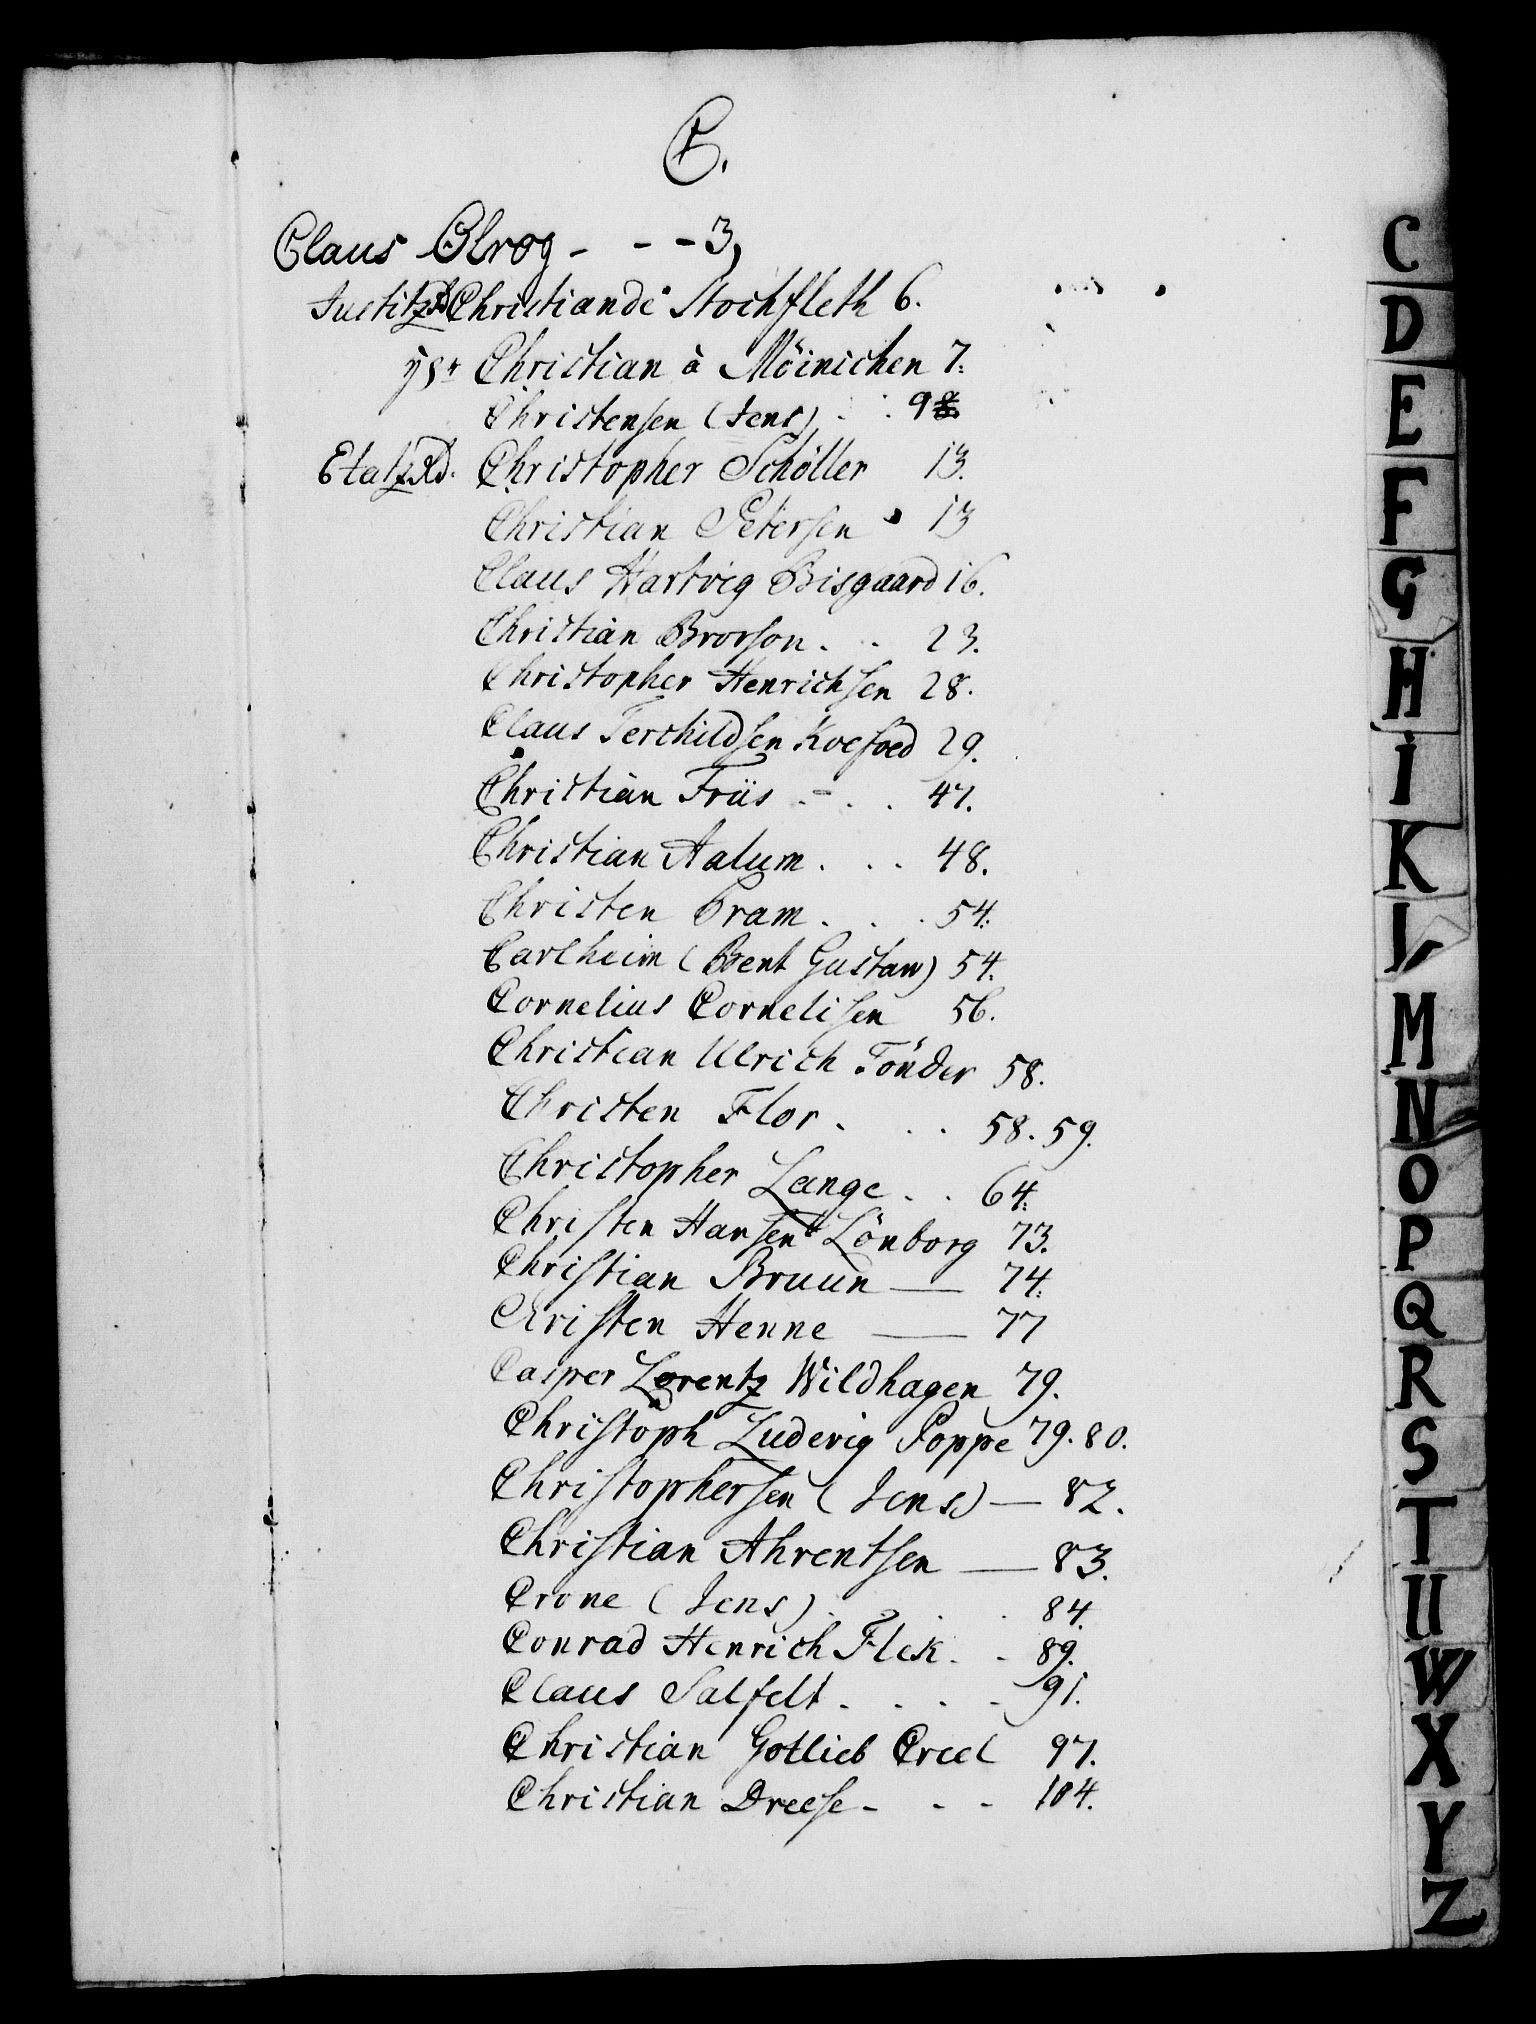 C.
Claus Olrog - - - 3,
Justitz Rd Christian de Stochfleth 6.
Christian à Möinichen 7.
Christensen (Jens) . . 9
EtatzRd. Christopher Schöller 13.
Christian Petersen 13
Claus Hartvig Bisgaard 16.
Christian Brorson . . 23.
Christopher Henrichsen 28.
Claus Terchildsen Koefoed 29.
Christian Friis . - . . 47.
Christian Aalum . . . 48.
Christen Pram . . . 54.
Carlheim (Bent Gustaw) 54.
Cornelius Cornelisen 56.
Christian Ulrich Tönder 58.
Christen Flor . . . 58. 59.
Christopher Lange . . 64.
Christen Hansen Lönborg 73.
Christian Bruun — 74.
Christen Henne — 77
Casper Lorentz Wildhagen 79.
Christoph Ludevig Poppe 79. 80.
Christophersen (Jens) — 82.
Christian Ahrentsen — 83.
Crone (Jens) . . . 84.
Conrad Henrich Flek . - 89.
Claus Salfelt . . . - 91.
Christian Gotlieb Creel 97.
Christian Dreese - - - 104.
C
D
E
F
G
H
I
K
L
M
N
O
P
Q
R
S
T
U
W
X
Y
Z